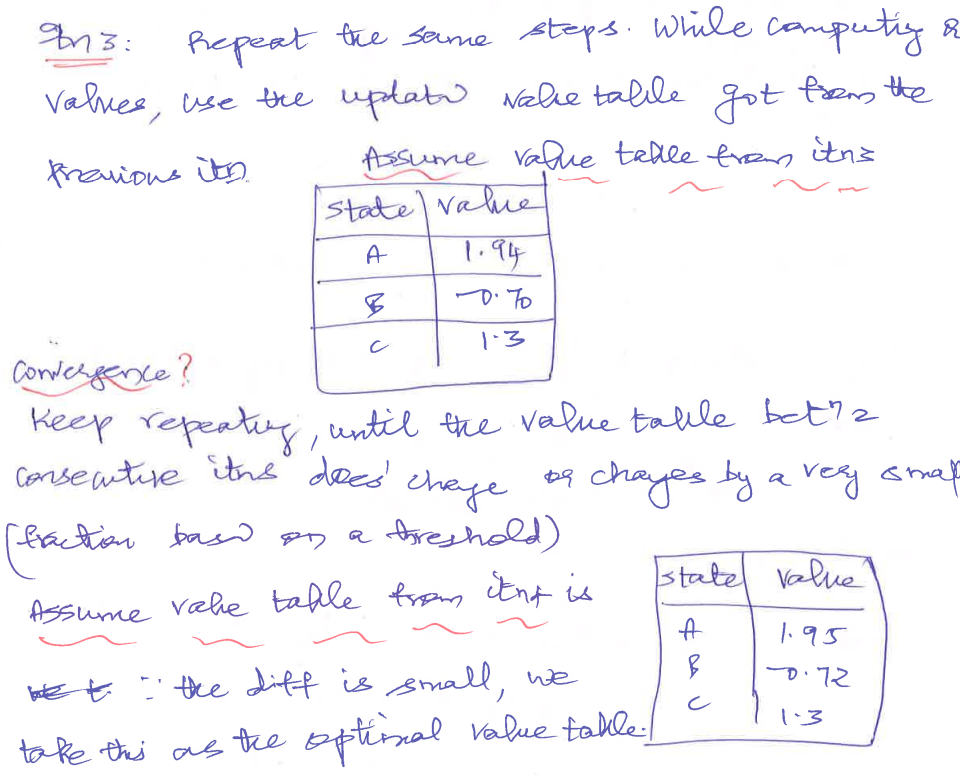 Itn 3: Repeat the same steps. While computing Q
values, use the updated value table got from the
previous itn. Assume value table from itn3
state value
A 1.94
B -0.70
C 1.3
Convergence?
Keep repeating, until the value table betn 2
consecutive itns does' change or changes by a very small
(fraction based on a threshold)
Assume value table from itn4 is
state value
A 1.95
B -0.72
C 1.3
∵ the diff is small, we
take this as the optimal value table.